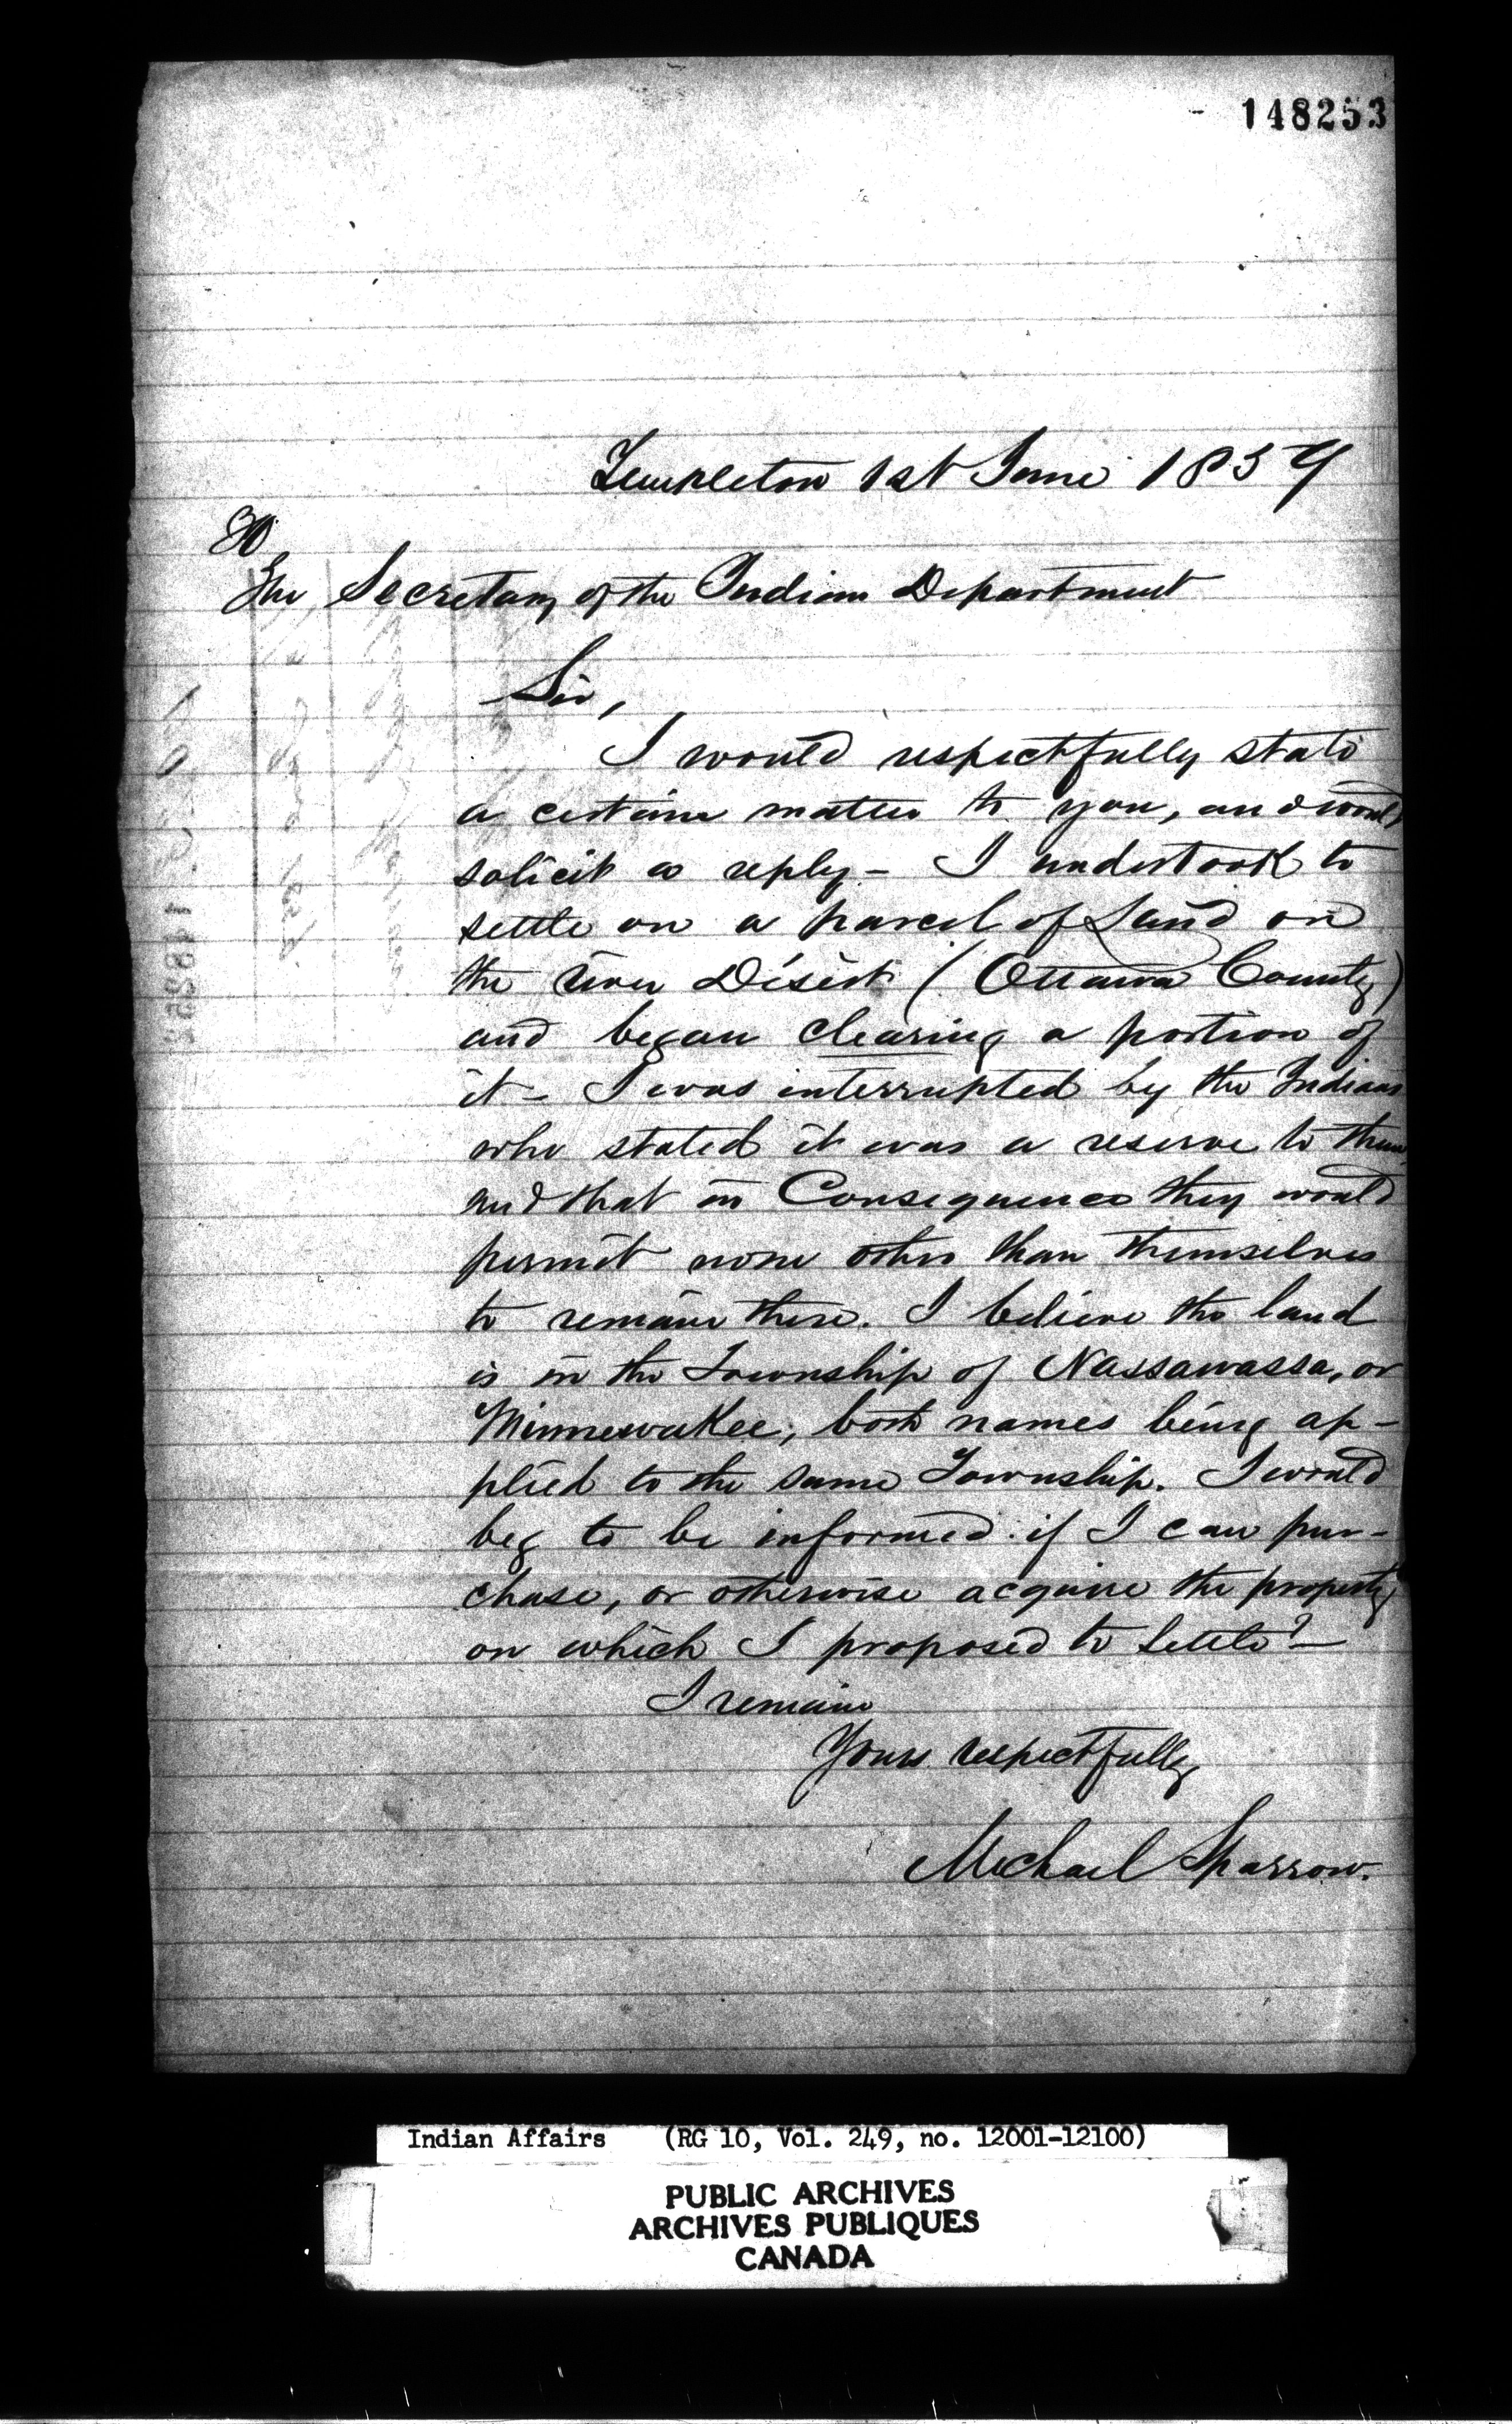 148253
Templeton 1st June 1859
To
The Secretary of the Indian Department
Sir,
I would respectfully state
a certain matter to you, and would
solicit a reply - I undertook to
settle on a parcel of Land on
the River Désèrt (Ottawa County)
and began clearing a portion of
it - I was interrupted by the Indians
who stated it was a reserve to them
and that in Consequence they would
permit none other than themselves
to remain there. I believe the land
is in the Township of Nassawassa, or
Minnewakee, both names being ap-
plied to the same Township. I would
beg to be informed if I can pur-
chase, or otherwise acquire the property
on which I proposed to settle? -
I remain
Yours respectfully
Michael Sparrow.
Indian Affairs (RG 10, Vol. 249, no. 12001-12100)
PUBLIC ARCHIVES
ARCHIVES PUBLIQUES
CANADA